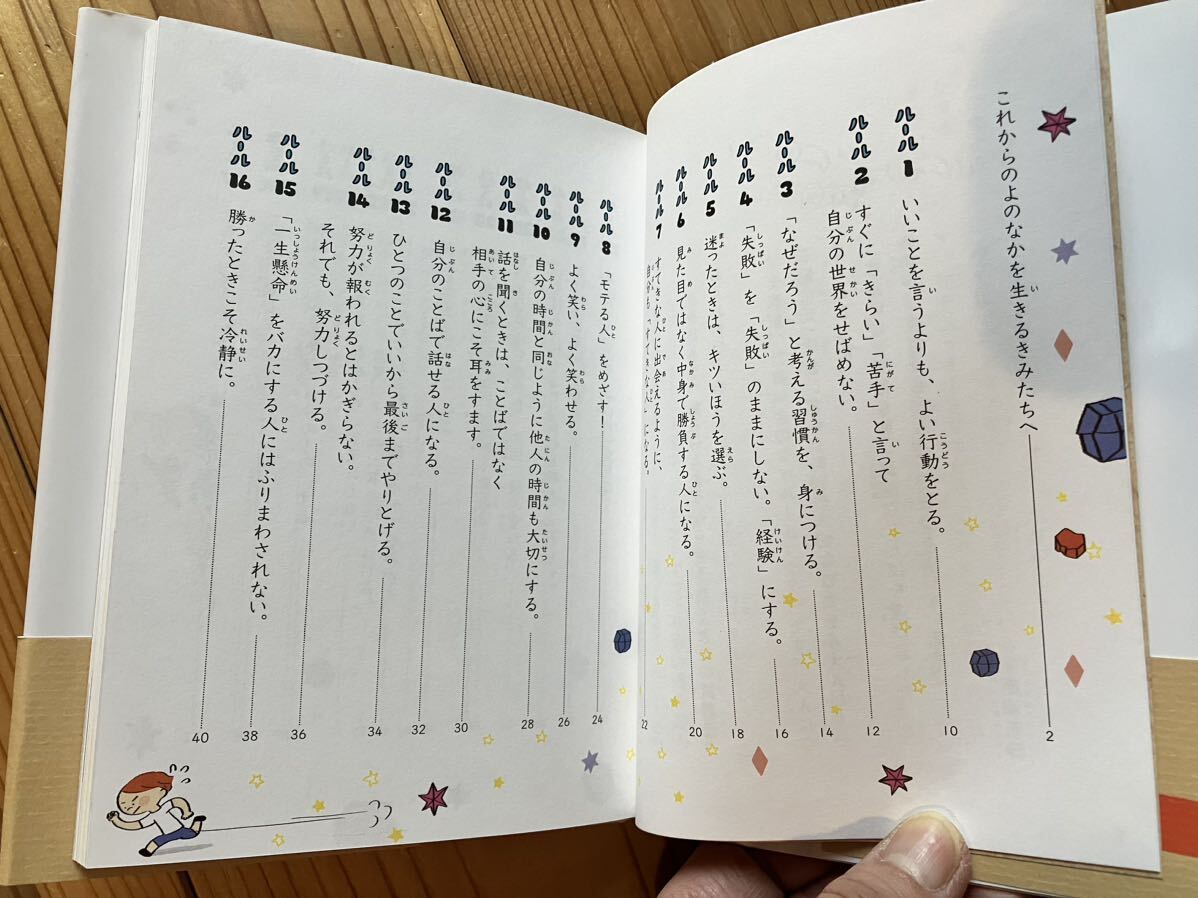 これからのよのなかを生きるきみたちへ 2
ルール1 いいことを言うよりも、よい行動をとる。 10
ルール2 すぐに「きらい」「苦手」と言って
自分の世界をせばめない。 12
ルール3 「なぜだろう」と考える習慣を、身につける。 14
ルール4 「失敗」を「失敗」のままにしない。「経験」にする。 16
ルール5 迷ったときは、キツいほうを選ぶ。 18
ルール6 見た目ではなく中身で勝負する人になる。 20
ルール7 すてきな人に出会えるように、
自分も「すてきな人」になる。 22
ルール8 「モテる人」をめざす! 24
ルール9 よく笑い、よく笑わせる。 26
ルール10 自分の時間と同じように他人の時間も大切にする。 28
ルール11 話を聞くときは、ことばではなく
相手の心にこそ耳をすます。 30
ルール12 自分のことばで話せる人になる。 32
ルール13 ひとつのことでいいから最後までやりとげる。 34
ルール14 努力が報われるとはかぎらない。
それでも、努力しつづける。 36
ルール15 「一生懸命」をバカにする人にはふりまわされない。 38
ルール16 勝ったときこそ冷静に。 40